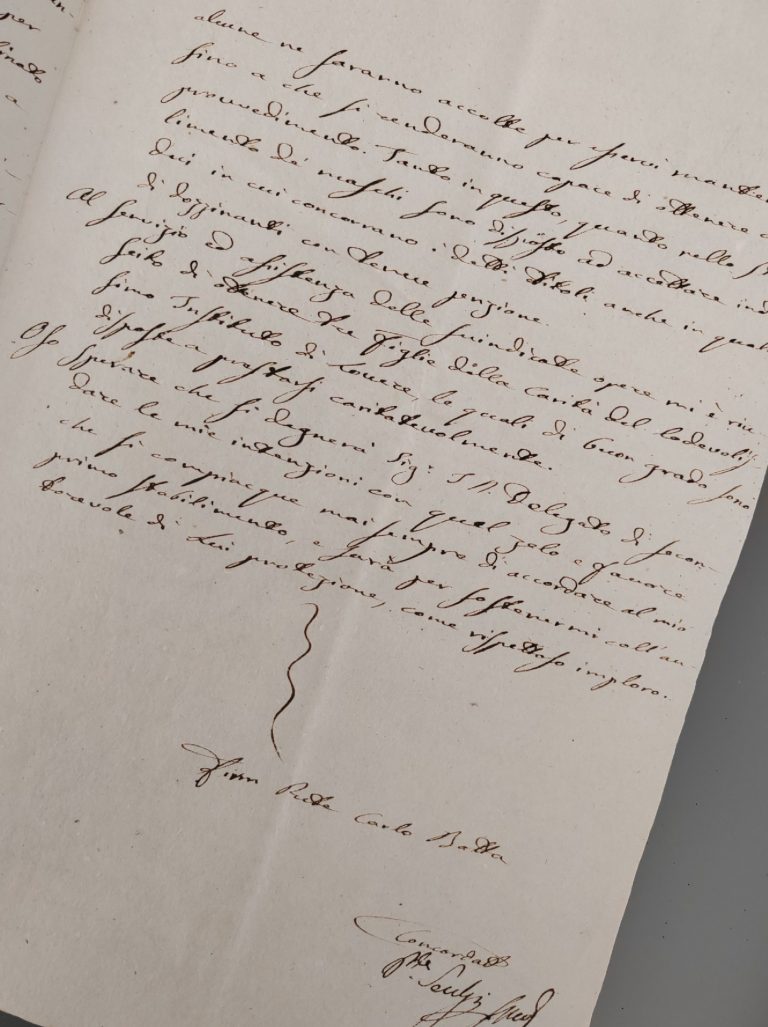 an-
per
a
alcune ne saranno accolte per esservi mante
fino a che si renderanno capace di ottenere
provvedimento. Tanto in questo, quanto nello
limento dei maschi sono disposto ad accettare ind
dui in cui concorrano i detti titoli anche in qual
di dozzinanti con tenue penzione.
Al servizio ed assistenza delle suindicate opere mi è riu
scito di ottenere tre Figlie della Carità del lodevolis
simo Instituto di Lovere, le quali di buon grado sono
disposte a prestarsi caritatevolmente.
Oso sperare che si degnerà Sig: I. R. Delegato di secon
dare le mie intenzioni con quel zelo e favore
che si compiacque mai sempre di accordare al mio
primo stabilimento, e sarà per sostenermi coll'au
torevole di Lei protezione, come rispettoso imploro.
Firm Prete Carlo Botta
Concordat